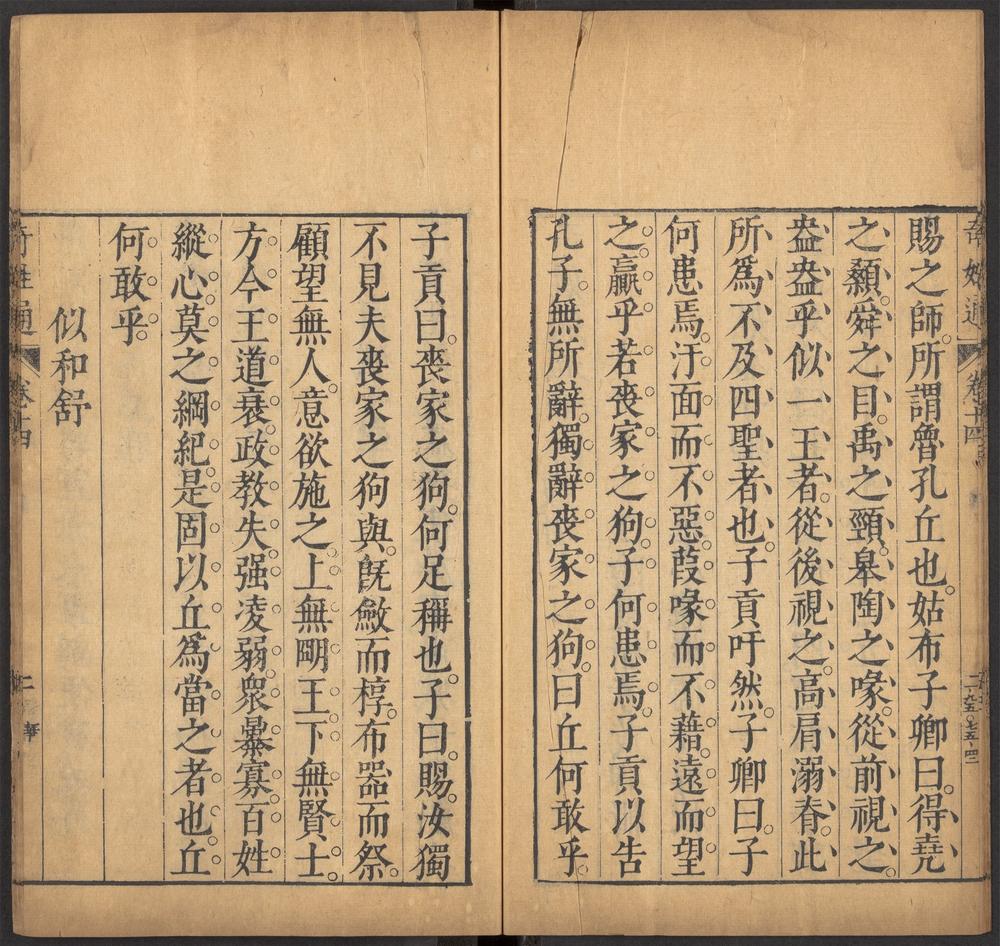 賜之師所謂魯孔丘也姑布子卿曰得堯
之顙舜之目禹之頸皋陶之喙從前視之
盎盎乎似一王者從後視之高肩溺脊此
所爲不及四聖者也子貢吁然子卿曰子
何患焉汙面而不惡葭喙而不藉遠而望
之羸乎若喪家之狗子何患焉子貢以告
孔子無所辭獨辭喪家之狗曰丘何敢乎
子貢曰喪家之狗何足稱也子曰賜汝獨
不見夫喪家之狗與既斂而椁布器而祭
顧望無人意欲施之上無明王下無賢士
方今王道衰政教失强凌弱衆暴寡百姓
縱心莫之綱紀是固以丘爲當之者也丘
何敢乎
似和舒
奇姓通
卷十四
二